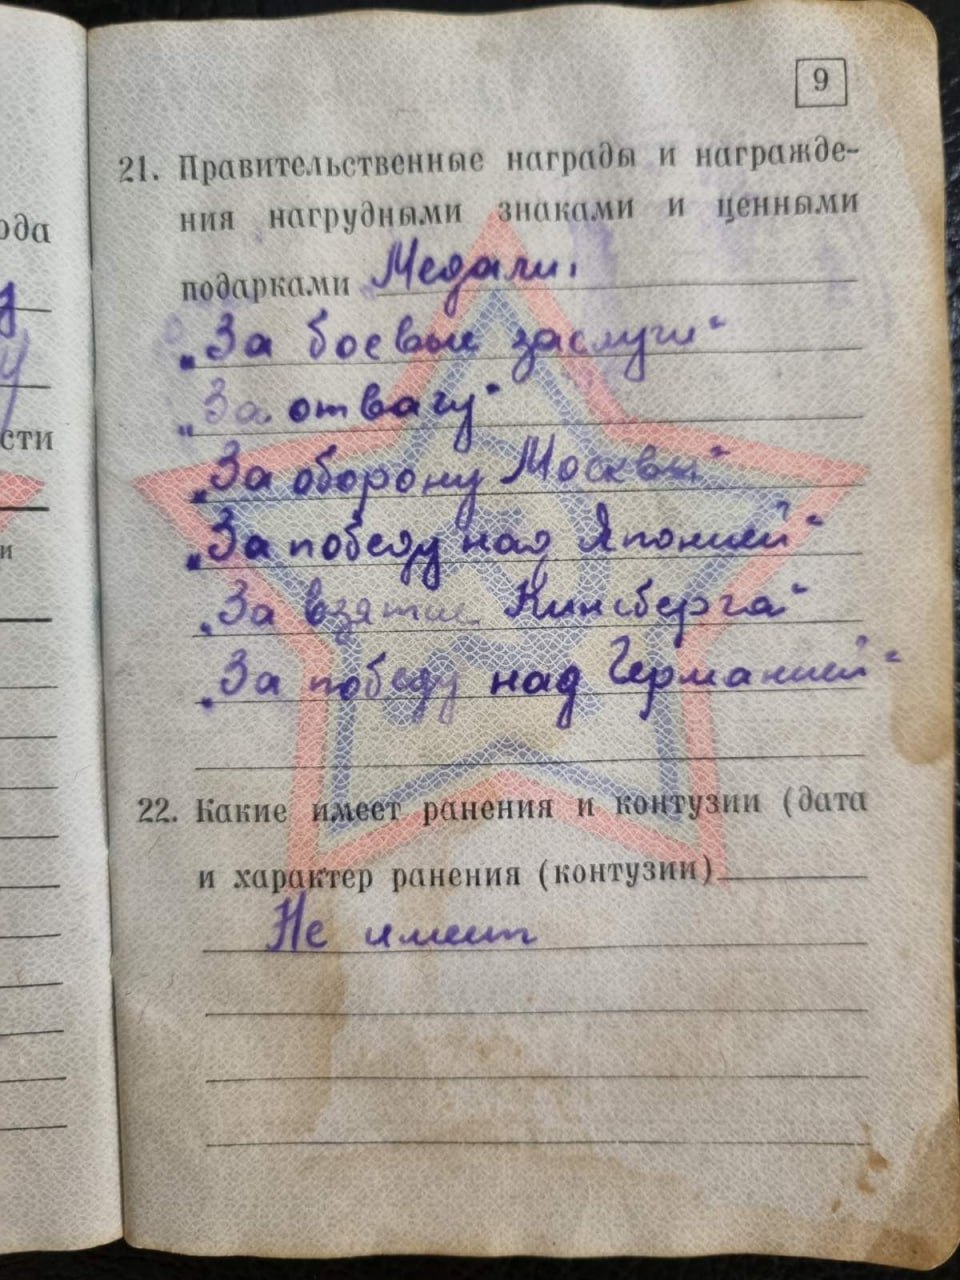 9
21. Правительственные награды и награжде-
ния нагрудными знаками и ценными
подарками Медали.
„За боевые заслуги"
„За отвагу"
„За оборону Москвы"
„За победу над Японией"
„За взятие Кинсберга"
„За победу над Германией"
22. Какие имеет ранения и контузии (дата
и характер ранения (контузии)
Не имеет
ода
сти
и